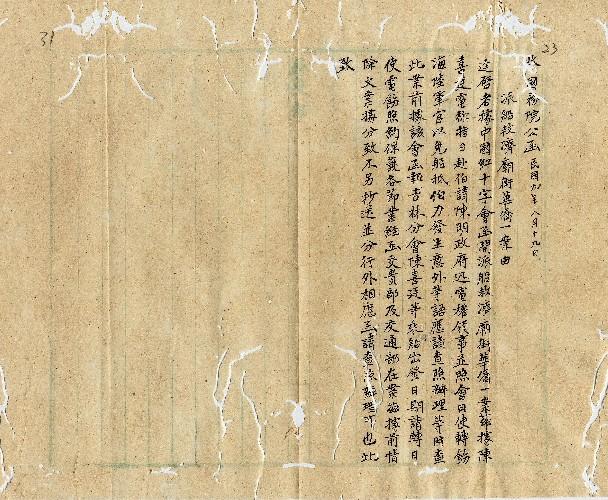 31
23
收國務院公函 民國九年八月十九日
派船救濟廟街華僑一案由
逕啓者據中國紅十字會函開派船救濟廟街華僑一案茲據陳
喜廷電稱指日赴伯請陳明政府迅電權領事並照會日使轉飭
海陸軍官以免船抵伯力發生意外等語應請查照辦理等因查
此案前據該會函報吉林分會陳喜廷等乘船出發日期請轉日
使電飭照約保護各節業經函交貴部及交通部在案茲據前情
除文案據分致不另抄送並分行外相應函請查照辦理可也此
致